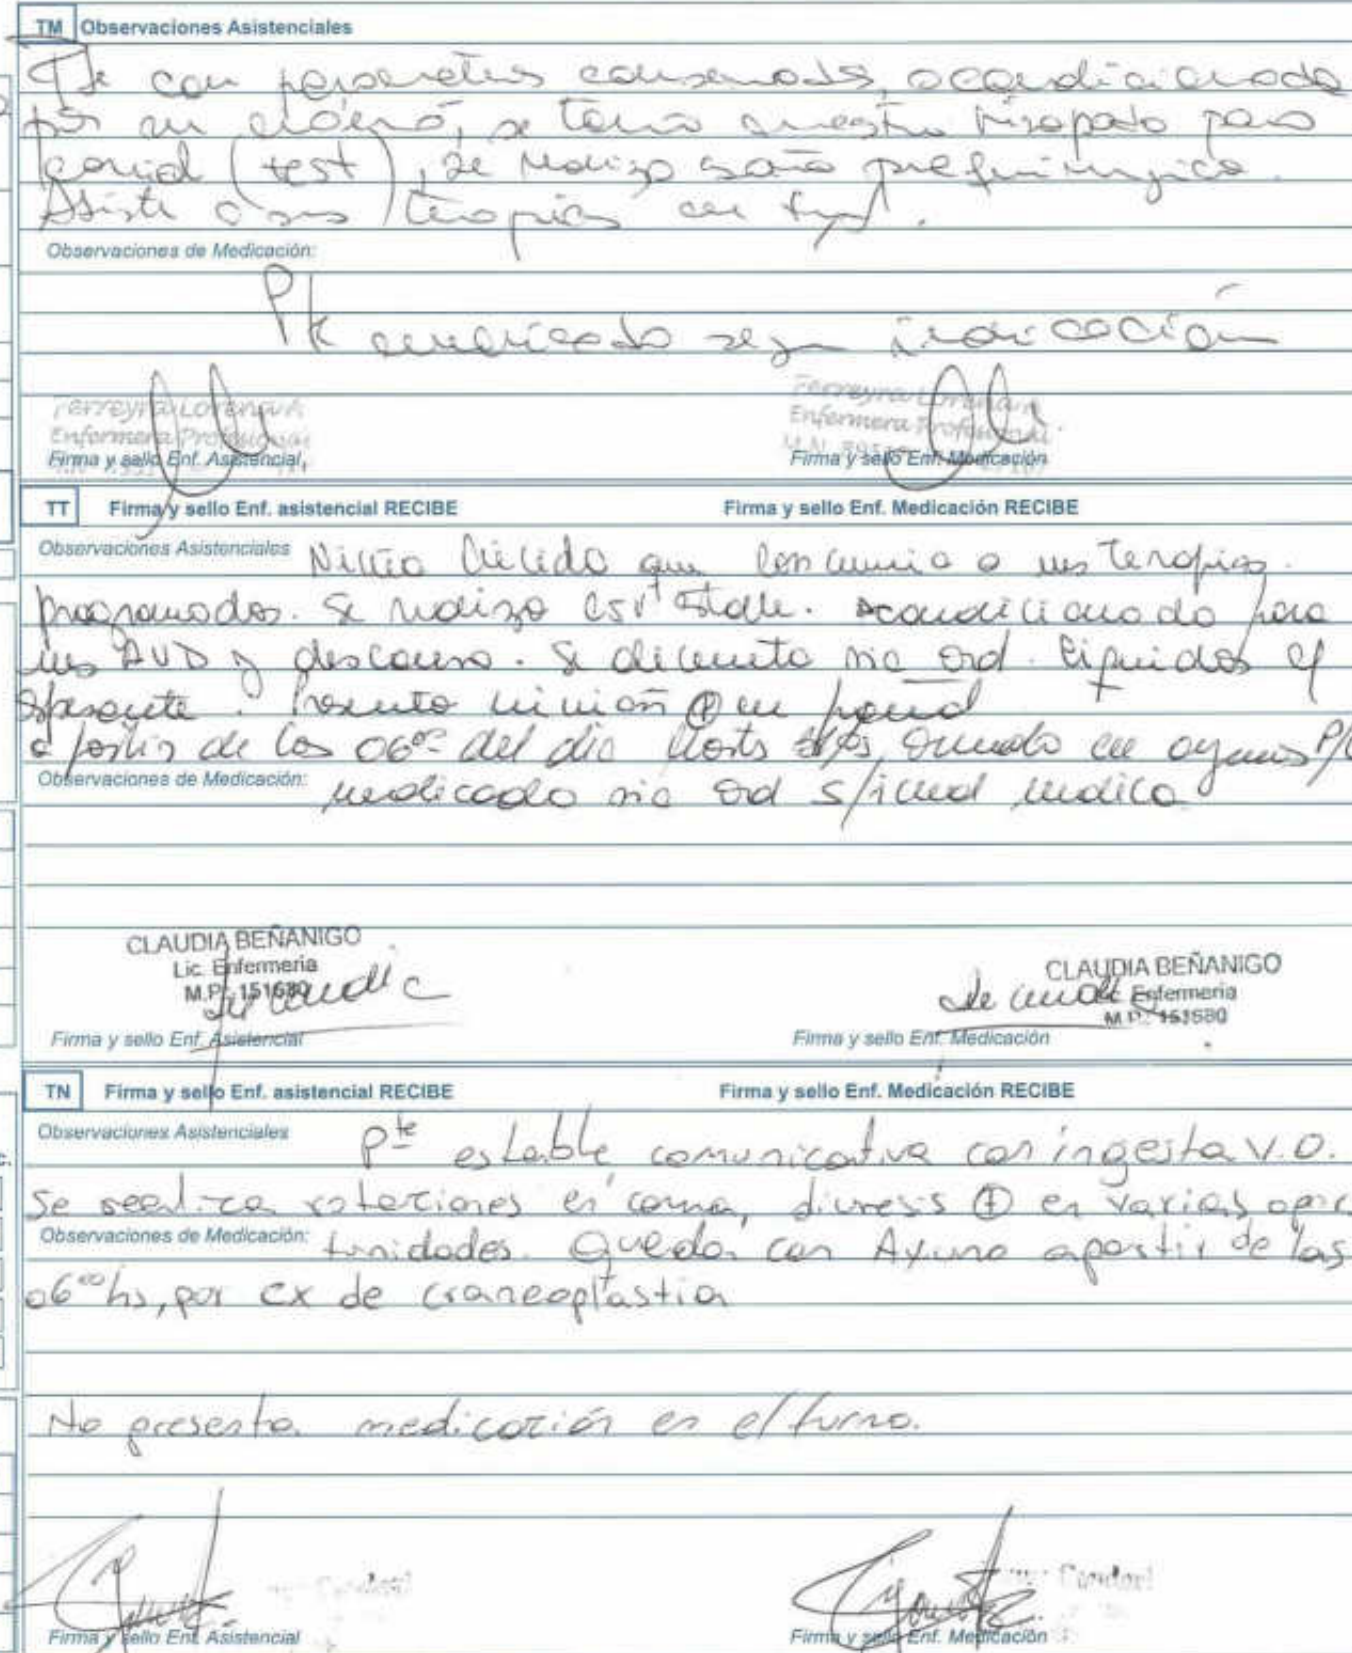 TM Observaciones Asistenciales
Pte con parametros conservados, acondicionada
por su, se tomó muestra hisopado para
covid (test), se realizo baño prequirurgico.
Asiste a sus terapias
Observaciones de Medicación:
Pte medicado segun indicación
Ferreyra Lorena
Enfermera Profesional
Firma y sello Enf. Asistencial
Ferreyra Lorena
Enfermera Profesional
Firma y sello Enf. Medicación
TT Firma y sello Enf. asistencial RECIBE Firma y sello Enf. Medicación RECIBE
Observaciones Asistenciales que concurrio a sus terapias
programadas. Se realizo estable. acondicionado para
sus AVD y descanso. Se alimenta via oral. liquidos c/
espesante. Presento miccion ⊕ en pañal
a partir de las 06⁰⁰ del dia queda en ayunas P/
Observaciones de Medicación: medicado via oral s/ medica
CLAUDIA BEÑANIGO
Lic. Enfermeria
M.P. 151680
Firma y sello Enf. Asistencial
CLAUDIA BEÑANIGO
Enfermeria
M.P. 151680
Firma y sello Enf. Medicación
TN Firma y sello Enf. asistencial RECIBE Firma y sello Enf. Medicación RECIBE
Observaciones Asistenciales Pte estable comunicativa con ingesta V.O.
Se realiza rotaciones en cama, diuresis ⊕ en varias opor
Observaciones de Medicación: tunidades. Queda con Ayuno apartir de las
06⁰⁰hs, por cx de craneoplastia
No presenta medicación en el turno.
Firma y sello Enf. Asistencial
Firma y sello Enf. Medicación